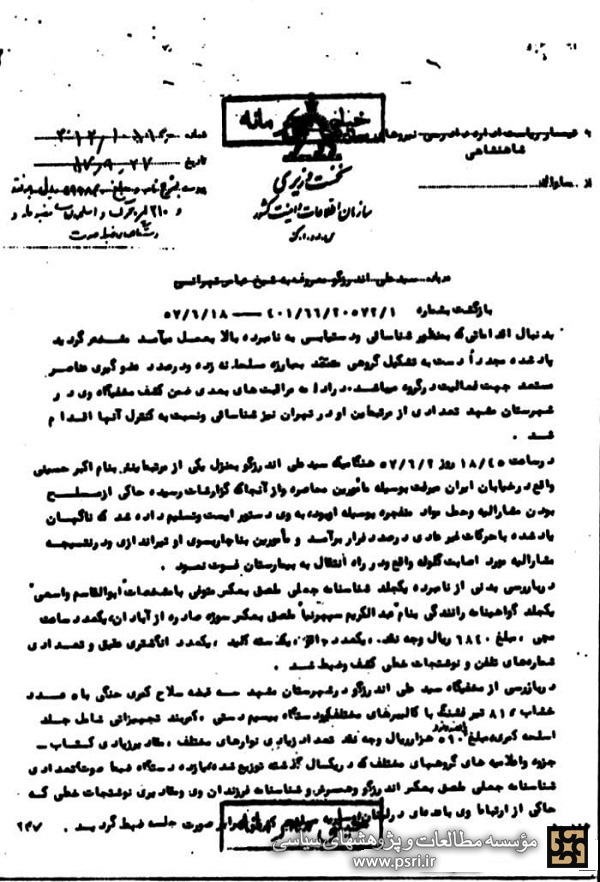 خیلی محرمانه
به
شاهنشاهی
از ساواک
نخست وزیری
سازمان اطلاعات و امنیت کشور
شماره
تاریخ
درباره سید علی اندرزگو معروف به شیخ عباس تهرانی
بازگشت بشماره ۴۰۱/۶۶/۲۰۵۷۲/۱ — ۵۷/۶/۱۸
بدنبال اقداماتی که بمنظور شناسائی و دستیابی به نامبرده بالا بعمل میآمد مشخص گردید
یاد شده مجدداً دست به تشکیل گروهی معتقد بمبارزه مسلحانه زده و درصدد عضوگیری عناصر
مستعد جهت فعالیت در گروه میباشد. در ادامه مراقبت های بعدی ضمن کشف مخفیگاه وی در
شهرستان مشهد تعدادی از مرتبطین او در تهران نیز شناسائی و نسبت به کنترل آنها اقدام
شد .
در ساعت ۱۸/۴۵ روز ۵۷/۶/۲ هنگامیکه سید علی اندرزگو بمنزل یکی از مرتبطینش بنام اکبر حسینی
واقع در خیابان ایران میرفت بوسیله مأمورین محاصره و از آنجا که گزارشات رسیده حاکی از مسلح
بودن مشارالیه و حمل مواد منفجره بوسیله او بوده به وی دستور ایست و تسلیم داده شد که ناگهان
یاد شده با حرکات غیر عادی درصدد فرار برآمد و مأمورین بناچار بسوی او تیراندازی و در نتیجه
مشارالیه مورد اصابت گلوله واقع و در راه انتقال به بیمارستان فوت نمود .
در بازرسی بدنی از نامبرده یکجلد شناسنامه جعلی ملصق بعکس متوفی با مشخصات "ابوالقاسم واسعی"
یکجلد گواهینامه رانندگی بنام "عبدالکریم سپهرنیا" ملصق بعکس سوژه صادره از آبادان یکعدد ساعت
مچی ، مبلغ ۶۸۴۰ ریال وجه نقد ، یکعدد یکدسته کلید ، یکعدد انگشتری عقیق و تعدادی
شماره های تلفن و نوشتجات خطی کشف و ضبط شد .
در بازرسی از مخفیگاه سید علی اندرزگو در شهرستان مشهد سه قبضه سلاح کمری جنگی با ۵ عدد
خشاب ، ۸۱۶ تیر فشنگ با کالیبرهای مختلف دستگاه بیسیم دستی ، کمربند تجهیزاتی شامل جلد
اسلحه کمری مبلغ ۵۹۰ هزار ریال وجه نقد تعداد زیادی نوارهای مختلف ، مقادیر زیادی کتاب –
جزوه و اعلامیه های گروههای مختلف که در یکسال گذشته توزیع شده دستگاه ضبط صوت تعدادی
شناسنامه جعلی ملصق بعکس اندرزگو و همسرش و شناسنامه فرزندان وی و مقادیری نوشتجات خطی که
حاکی از ارتباط وی با صورت جلسه ضبط گردید .
۲۴۷
خیلی محرمانه
مؤسسه مطالعات و پژوهشهای سیاسی
www.psri.ir